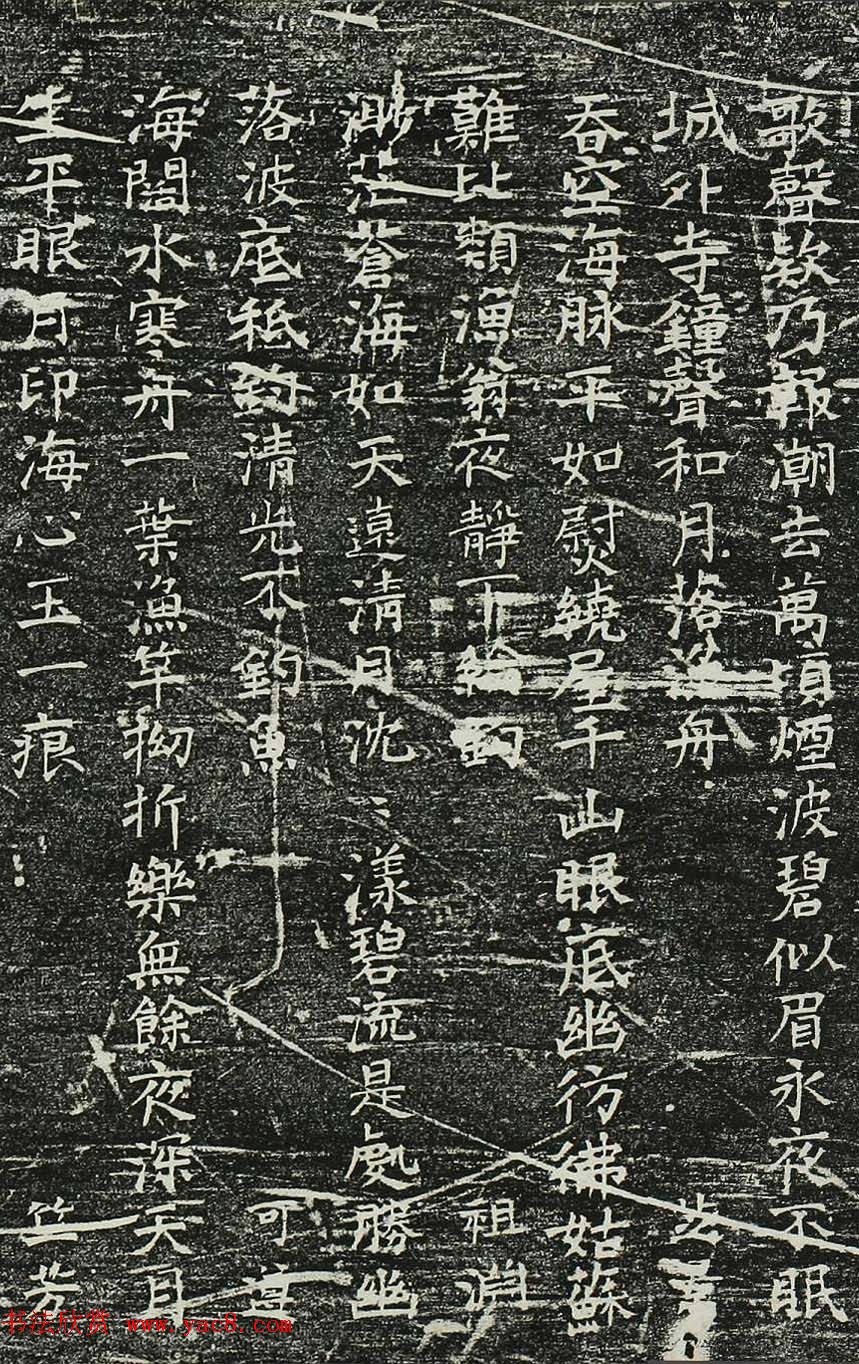 歌聲欵乃報潮去萬頃煙波碧似眉永夜不眠
城外寺鐘聲和月落舟
吞空海脉平如熨繞屋千山眼底幽彷彿姑蘇
難比類漁翁夜靜下綸釣 祖淵
渺茫蒼海如天遠清月沈〻漾碧流是處勝幽
落波底秪釣清光不釣魚 可
海闊水寒舟一葉漁竿拗折樂無餘夜深天月
生平眼月印海心玉一痕 竺芳
书法欣赏 www.yac8.com